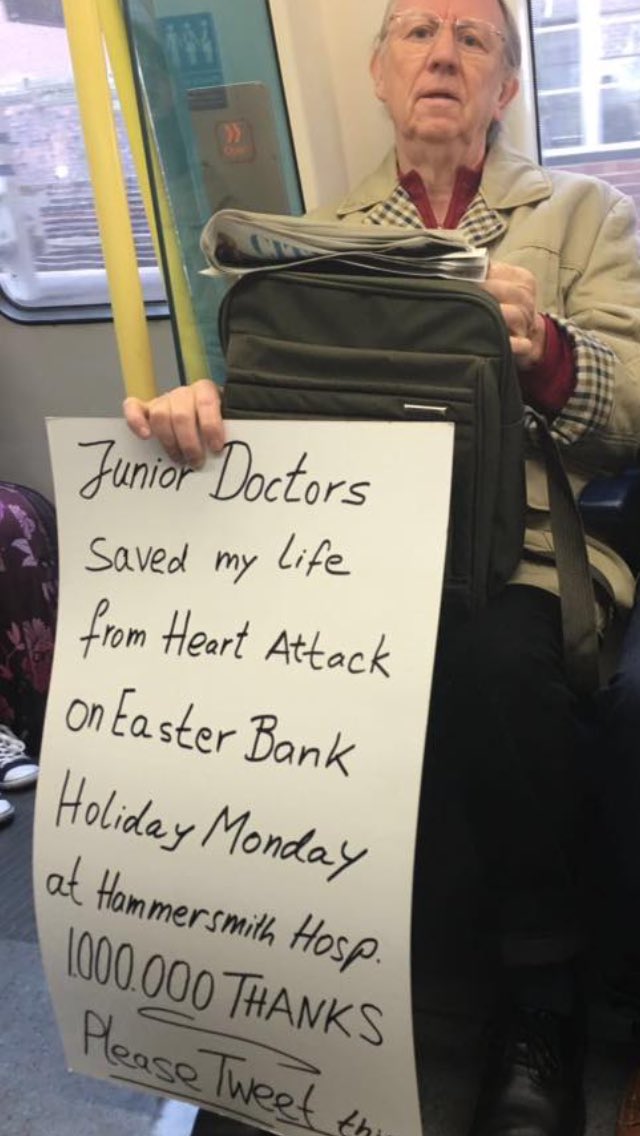 Junior Doctors
saved my life
from Heart Attack
on Easter Bank
Holiday Monday
at Hammersmith Hosp.
1.000.000 THANKS
Please Tweet